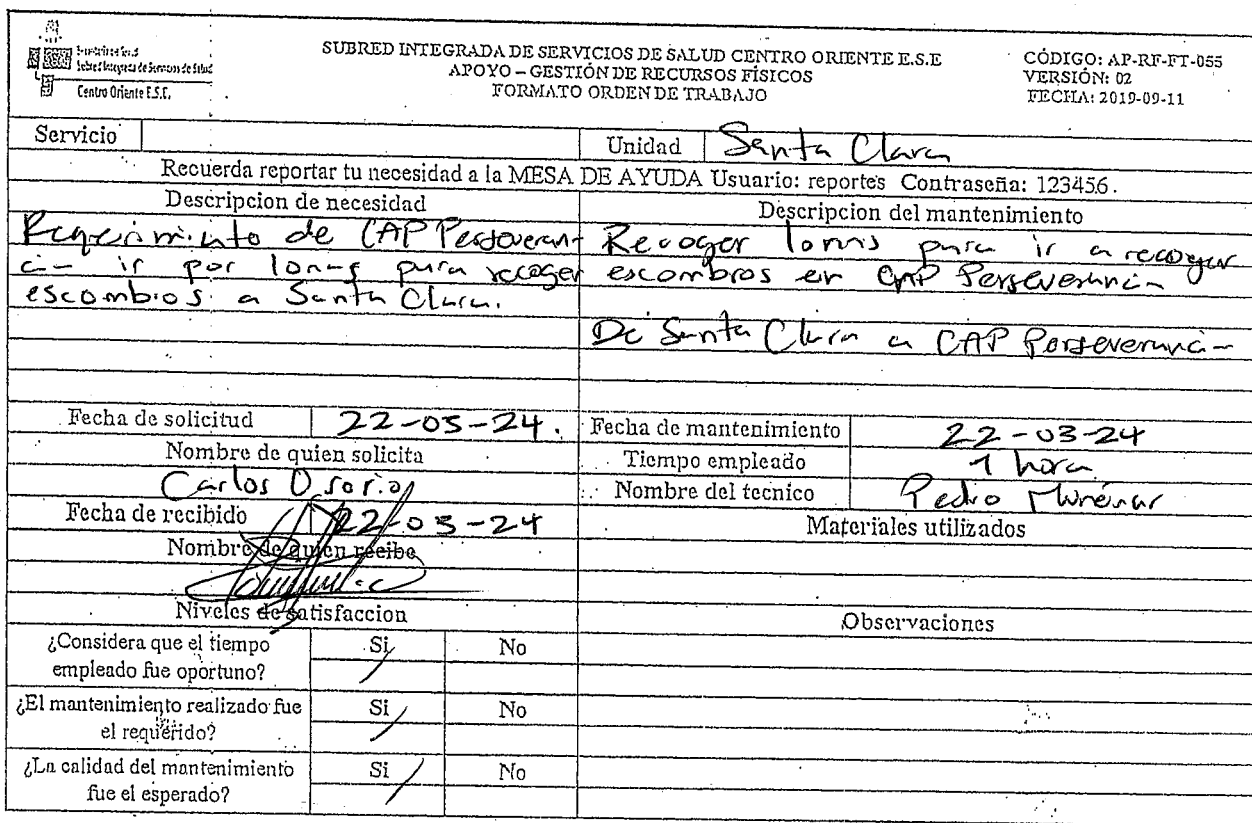 Centro Oriente E.S.E.
SUBRED INTEGRADA DE SERVICIOS DE SALUD CENTRO ORIENTE E.S.E
APOYO – GESTIÓN DE RECURSOS FÍSICOS
FORMATO ORDEN DE TRABAJO
CÓDIGO: AP-RF-FT-055
VERSIÓN: 02
FECHA: 2019-09-11
Servicio
Unidad Santa Clara
Recuerda reportar tu necesidad a la MESA DE AYUDA Usuario: reportes Contraseña: 123456.
Descripcion de necesidad
Requerimiento de CAP Perseveran-
cia ir por lonas para recoger
escombros a Santa Clara.
Descripcion del mantenimiento
Recoger lonas para ir a recoger
escombros en CAP Perseverancia
De Santa Clara a CAP Perseverancia
Fecha de solicitud 22-03-24.
Nombre de quien solicita
Carlos Osorio
Fecha de recibido 22-03-24
Nombre de quien recibe
Fecha de mantenimiento 22-03-24
Tiempo empleado 1 hora
Nombre del tecnico Pedro
Materiales utilizados
Niveles de satisfaccion
Observaciones
¿Considera que el tiempo
empleado fue oportuno?
Si No
¿El mantenimiento realizado fue
el requerido?
Si No
¿La calidad del mantenimiento
fue el esperado?
Si No